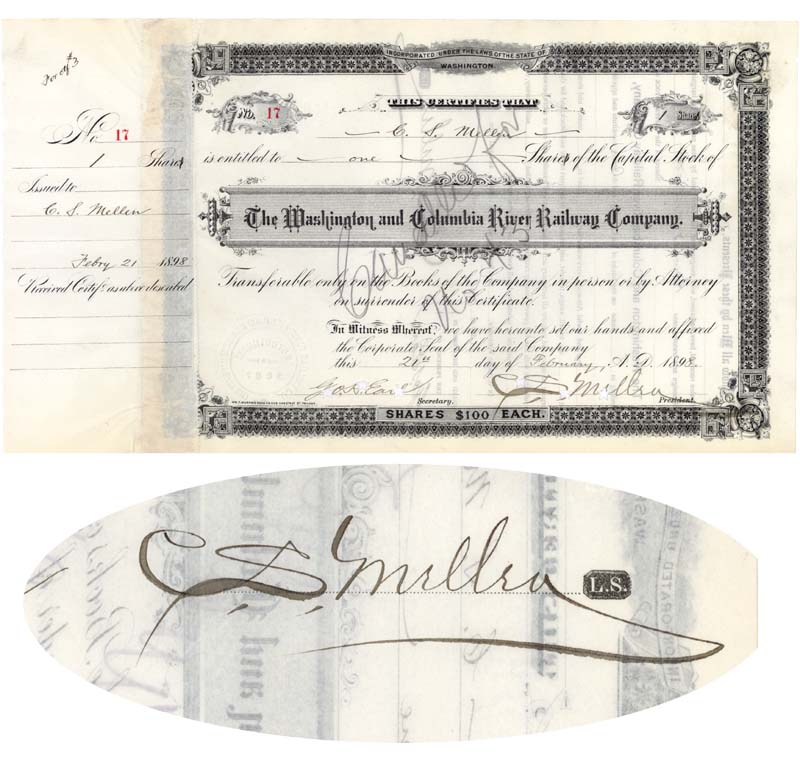 For of #3
No. 17
1 Shares
Issued to
C. S. Mellen
Febry 21 1898
Received Certif. as above described
INCORPORATED UNDER THE LAWS OF THE STATE OF
WASHINGTON.
No. 17
THIS CERTIFIES THAT
1 Shares
C. S. Mellen
is entitled to one Shares of the Capital Stock of
The Washington and Columbia River Railway Company.
Transferable only on the Books of the Company in person or by Attorney
on surrender of this Certificate.
In Witness Whereof, we have hereunto set our hands and affixed
the Corporate Seal of the said Company
this 21st day of February, A.D. 1898.
C S Mellen
Secretary. President.
SHARES $100 EACH.
Cancelled
C. S. Mellen L.S.